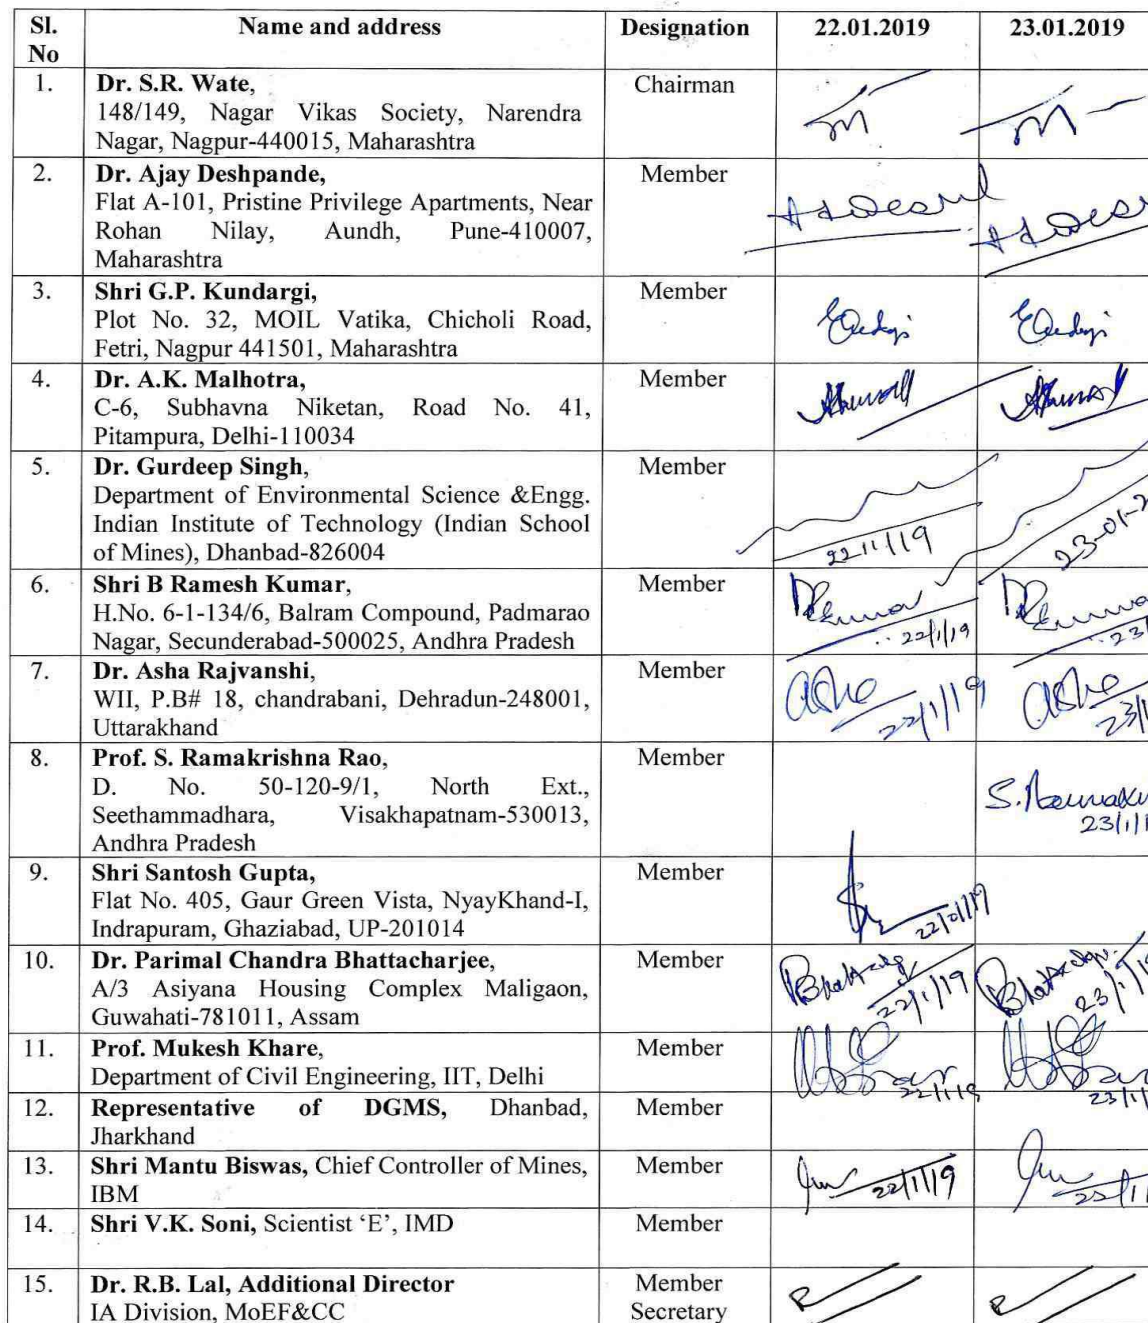 Sl. No Name and address Designation 22.01.2019 23.01.2019
1. Dr. S.R. Wate, Chairman
148/149, Nagar Vikas Society, Narendra
Nagar, Nagpur-440015, Maharashtra
2. Dr. Ajay Deshpande, Member
Flat A-101, Pristine Privilege Apartments, Near
Rohan Nilay, Aundh, Pune-410007,
Maharashtra
3. Shri G.P. Kundargi, Member
Plot No. 32, MOIL Vatika, Chicholi Road,
Fetri, Nagpur 441501, Maharashtra
4. Dr. A.K. Malhotra, Member
C-6, Subhavna Niketan, Road No. 41,
Pitampura, Delhi-110034
5. Dr. Gurdeep Singh, Member
Department of Environmental Science &Engg.
Indian Institute of Technology (Indian School
of Mines), Dhanbad-826004 22/1/19 23-01-
6. Shri B Ramesh Kumar, Member
H.No. 6-1-134/6, Balram Compound, Padmarao
Nagar, Secunderabad-500025, Andhra Pradesh 22/1/19 23/
7. Dr. Asha Rajvanshi, Member Asha Asha
WII, P.B# 18, chandrabani, Dehradun-248001, 22/1/19 23/1
Uttarakhand
8. Prof. S. Ramakrishna Rao, Member
D. No. 50-120-9/1, North Ext.,
Seethammadhara, Visakhapatnam-530013, 23/1/1
Andhra Pradesh
9. Shri Santosh Gupta, Member
Flat No. 405, Gaur Green Vista, NyayKhand-I,
Indrapuram, Ghaziabad, UP-201014 22/01/19
10. Dr. Parimal Chandra Bhattacharjee, Member
A/3 Asiyana Housing Complex Maligaon, 22/1/19 23/1/19
Guwahati-781011, Assam
11. Prof. Mukesh Khare, Member
Department of Civil Engineering, IIT, Delhi 22/1/19 23/1/1
12. Representative of DGMS, Dhanbad, Member
Jharkhand
13. Shri Mantu Biswas, Chief Controller of Mines, Member 22/1/19
IBM
14. Shri V.K. Soni, Scientist ‘E’, IMD Member
15. Dr. R.B. Lal, Additional Director Member
IA Division, MoEF&CC Secretary